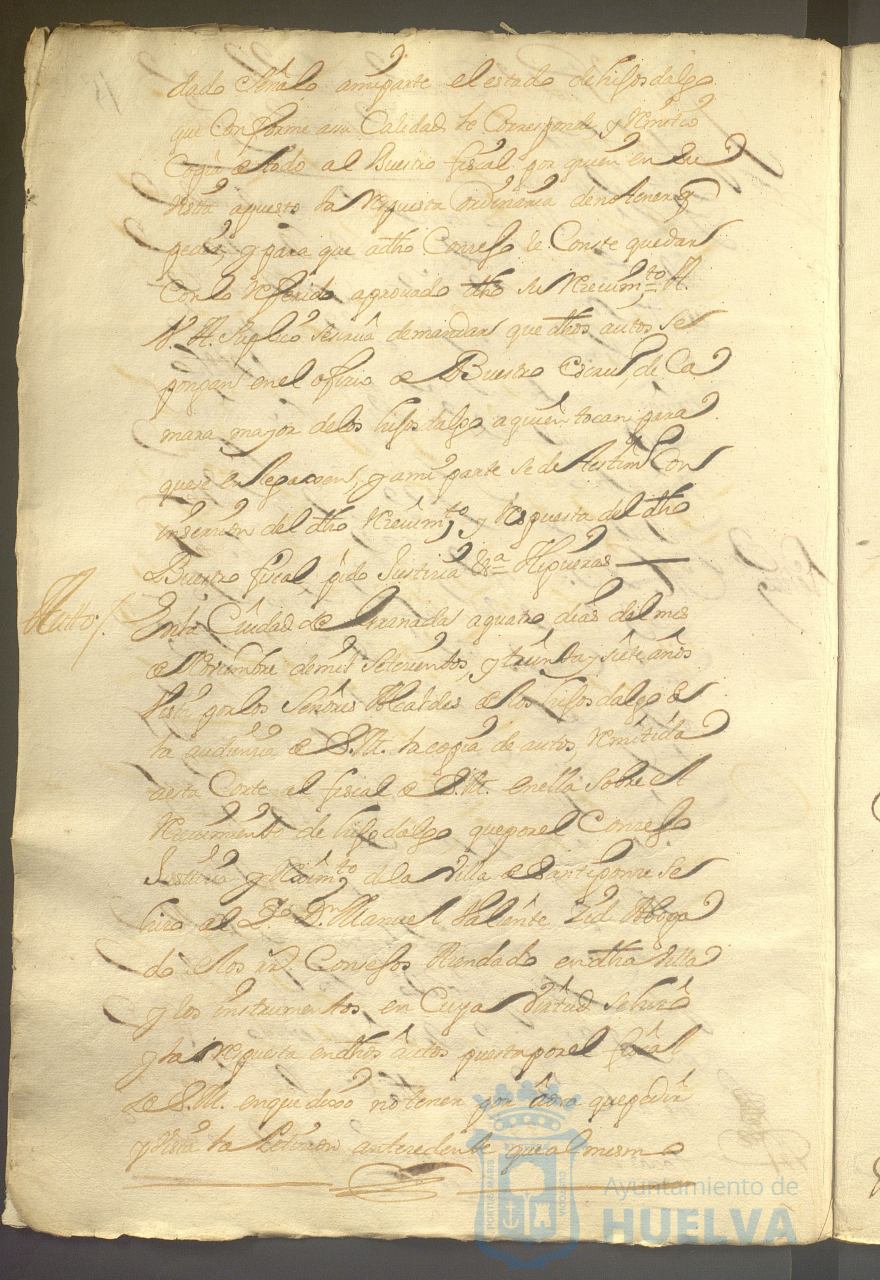 dado señalo amiparte el estado de hijosdalgo
que Conforme asu Calidad le Corresponde, y remitio
Copia de todo al Buestro fiscal por quien en su
Vista apuesto la respuesta ordinaria deno tener q
pedir, y para que adho Conzejo le Conste quedar
Con lo referido aprovado dho su recivim.to A
V. A. suplico sesirva demandar que dhos autos se
pongan en el ofizio de Buestro Escriv.no de Ca
mara mayor delos hijosdalgo aquien tocan para
quese, y ami parte se de testim.o Con
insercion del dho recivim.to y respuesta del dho
Buestro fiscal pido Justicia &ra Higueras
Autto /.
Enla Ciudad de Granada aquatro dias del mes
de Noviembre demil setezientos y treinta y siete años
Visto por los Señores Alcaldes de los hijosdalgo de
la audienzia de S. M. la copia de autos, remitida
aesta Corte al fiscal de S. M. enella sobre el
recivimiento de hijodalgo que por el Conzejo
Justicia y rexim.to dela Villa de Santiponze se
hizo al D.r D.n Manuel Valiente Aboga
do de los rs. Consejos en dha Villa
y los instrumentos, en Cuya Virtud se hizo
y la respuesta endhos autos puesta por el fiscal
de S. M. enque dixo no tener por aora que pedir
y Vista la Peticion antezedente que al mesmo
Ayuntamiento de
HUELVA